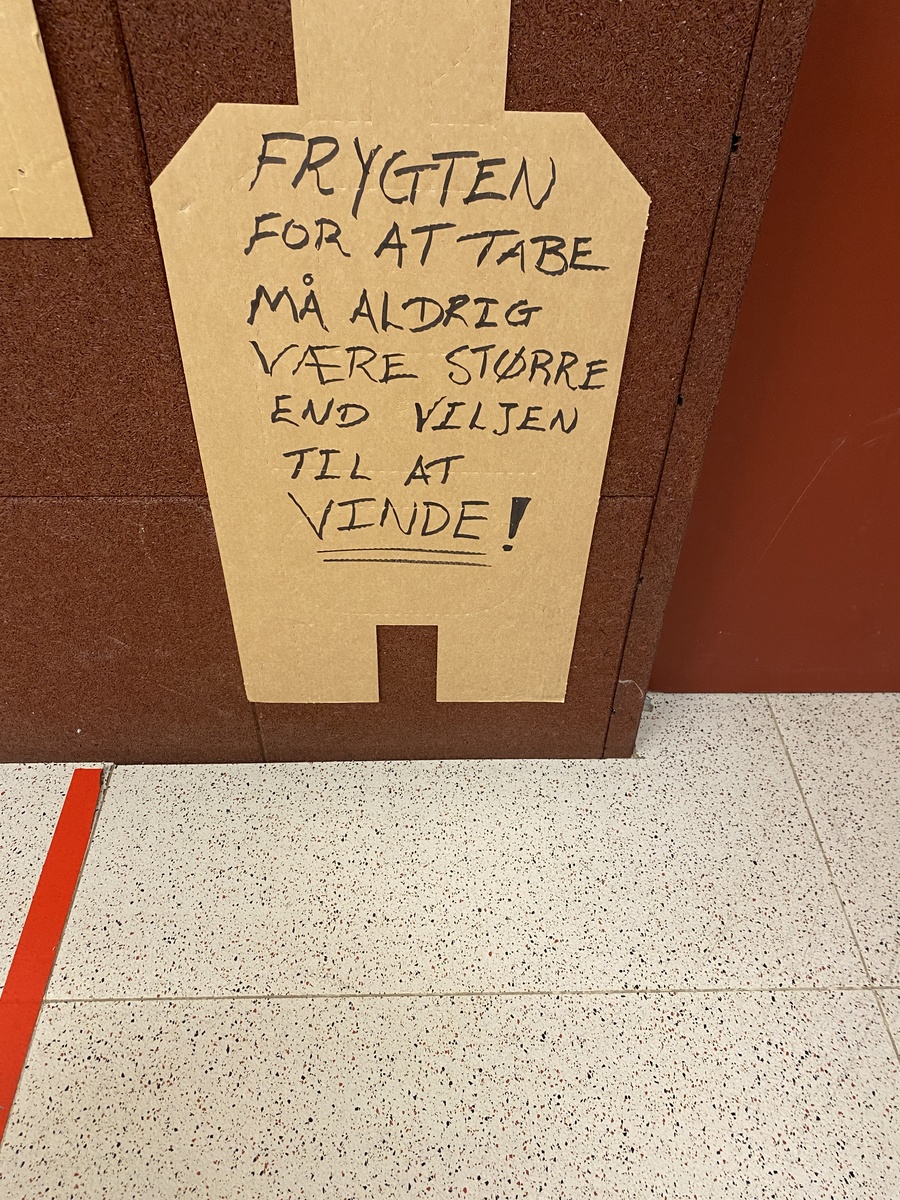 FRYGTEN
FOR AT TABE
MÅ ALDRIG
VÆRE STØRRE
END VILJEN
TIL AT
VINDE!